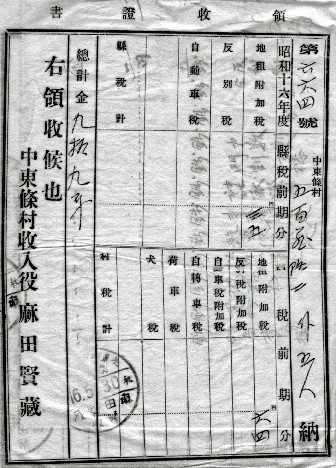 領收證書
第六六四號
中東條村
外五人
納
昭和十六年度
縣稅前期分
稅前期分
地租附加稅
三五
反別稅
自動車稅
縣稅計
地租附加稅
六四
反別稅附加稅
自動車稅附加稅
自轉車稅
荷車稅
犬稅
村稅計
總計金九拾九錢
右領收候也
中東條村收入役麻田賢藏
16.5.30